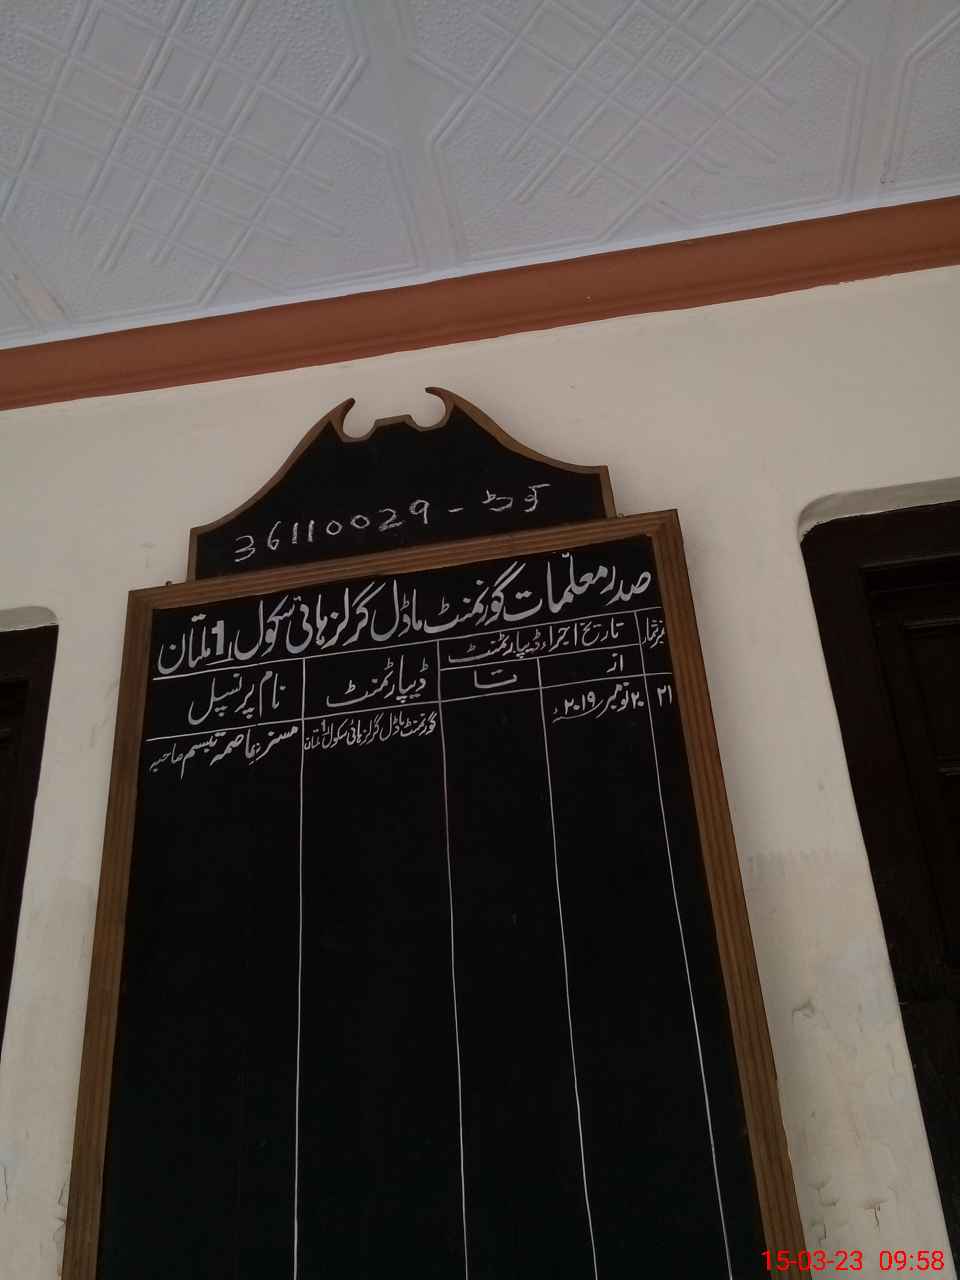 36110029 - کوڈ
صدر معلمات گورنمنٹ ماڈل گرلز ہائی سکول 1 ملتان
نمبر شمار تاریخ اجراء ڈیپارٹمنٹ ڈیپارٹمنٹ نام پرنسپل
از تا
۲۱ ۲۰ نومبر ۲۰۱۹ء گورنمنٹ ماڈل گرلز ہائی سکول 1 ملتان مسز عاصمہ تبسم صاحبہ
15-03-23 09:58